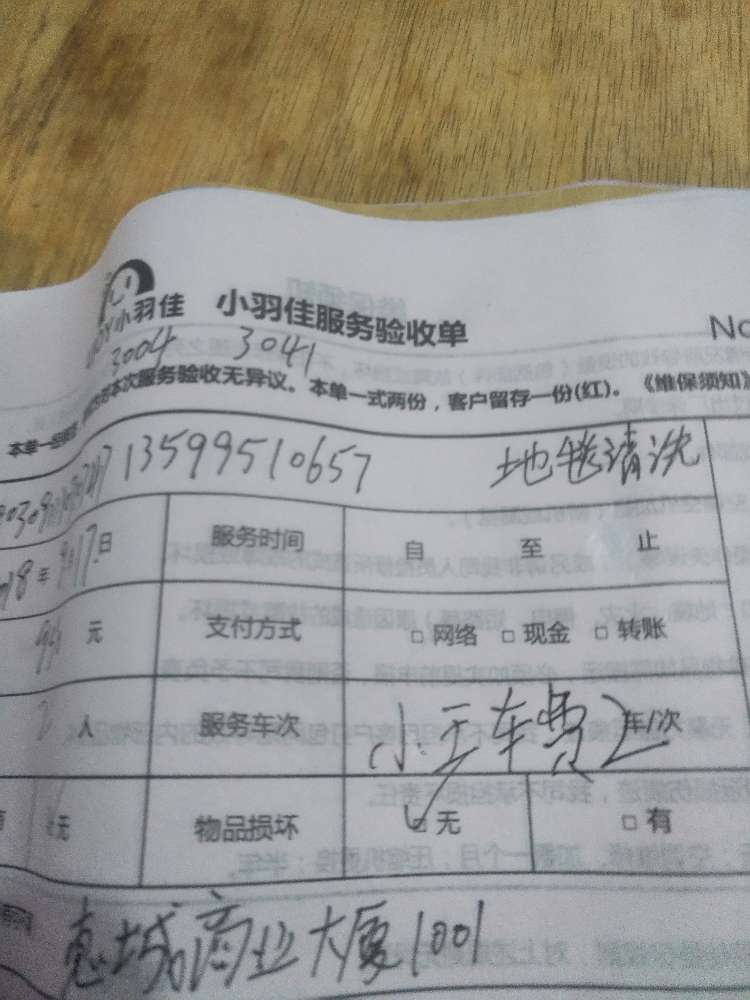 小羽佳 小羽佳服务验收单
No
3004 3041
本次服务验收无异议。本单一式两份，客户留存一份(红)。《维保须知》
13599510657 地毯清洗
18年9月17日 服务时间 自 至 止
元 支付方式 □网络 □现金 □转账
2人 服务车次 小王车费2 车/次
无 物品损坏 ☑无 □有
惠城商业大厦1001